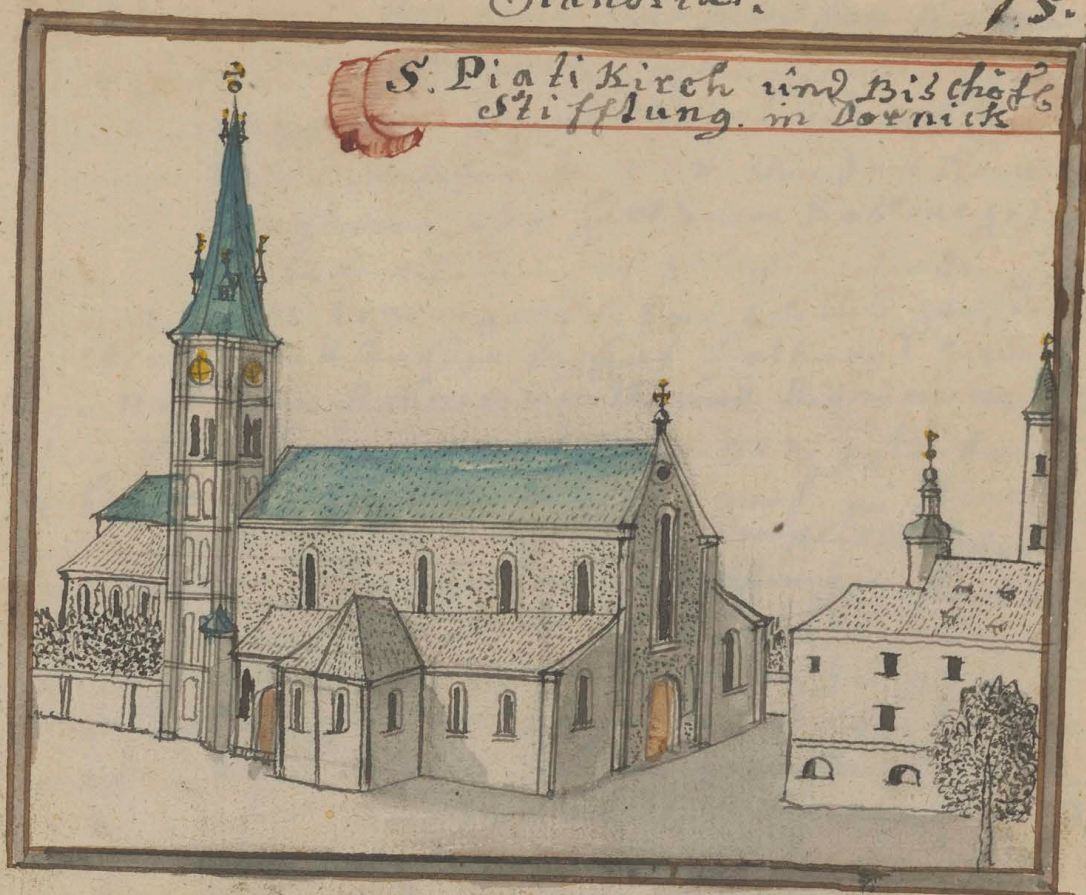 15.
S. Piati Kirch und Bischöfl
Stifftung. in Dornick